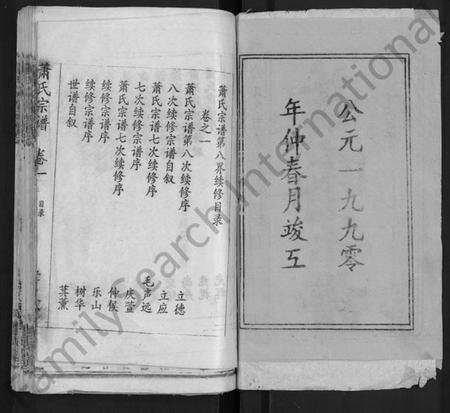 公元一九九零
年仲春月竣工
萧氏宗谱第八界续修目录
卷之一
萧氏宗谱第八次续修序 立德
八次续修宗谱自叙 立应
萧氏宗谱七次续修序 毛声远
七次续修宗谱序 庆萱
萧氏宗谱七次续修序 仲候
续修宗谱序 乐山
续修宗谱序 树华
世谱自叙 莱薰
萧氏宗谱 卷一 目录
Family Search International